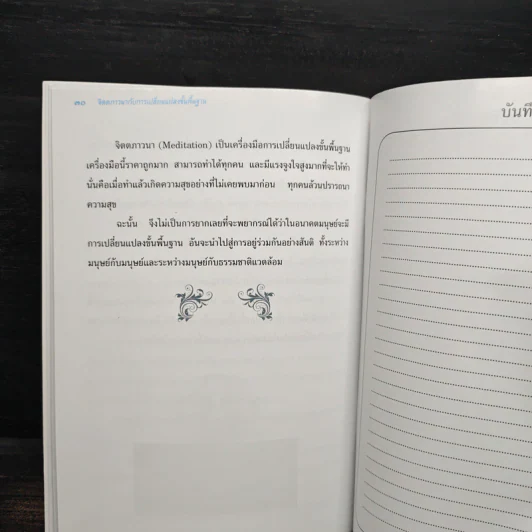 ๓๐ จิตตภาวนากับการเปลี่ยนแปลงขั้นพื้นฐาน
จิตตภาวนา (Meditation) เป็นเครื่องมือการเปลี่ยนแปลงขั้นพื้นฐาน
เครื่องมือนี้ราคาถูกมาก สามารถทำได้ทุกคน และมีแรงจูงใจสูงมากที่จะให้ทำ
นั่นคือเมื่อทำแล้วเกิดความสุขอย่างที่ไม่เคยพบมาก่อน ทุกคนล้วนปรารถนา
ความสุข
ฉะนั้น จึงไม่เป็นการยากเลยที่จะพยากรณ์ได้ว่าในอนาคตมนุษย์จะมี
การเปลี่ยนแปลงขั้นพื้นฐาน อันจะนำไปสู่การอยู่ร่วมกันอย่างสันติ ทั้งระหว่าง
มนุษย์กับมนุษย์และระหว่างมนุษย์กับธรรมชาติแวดล้อม
บันที